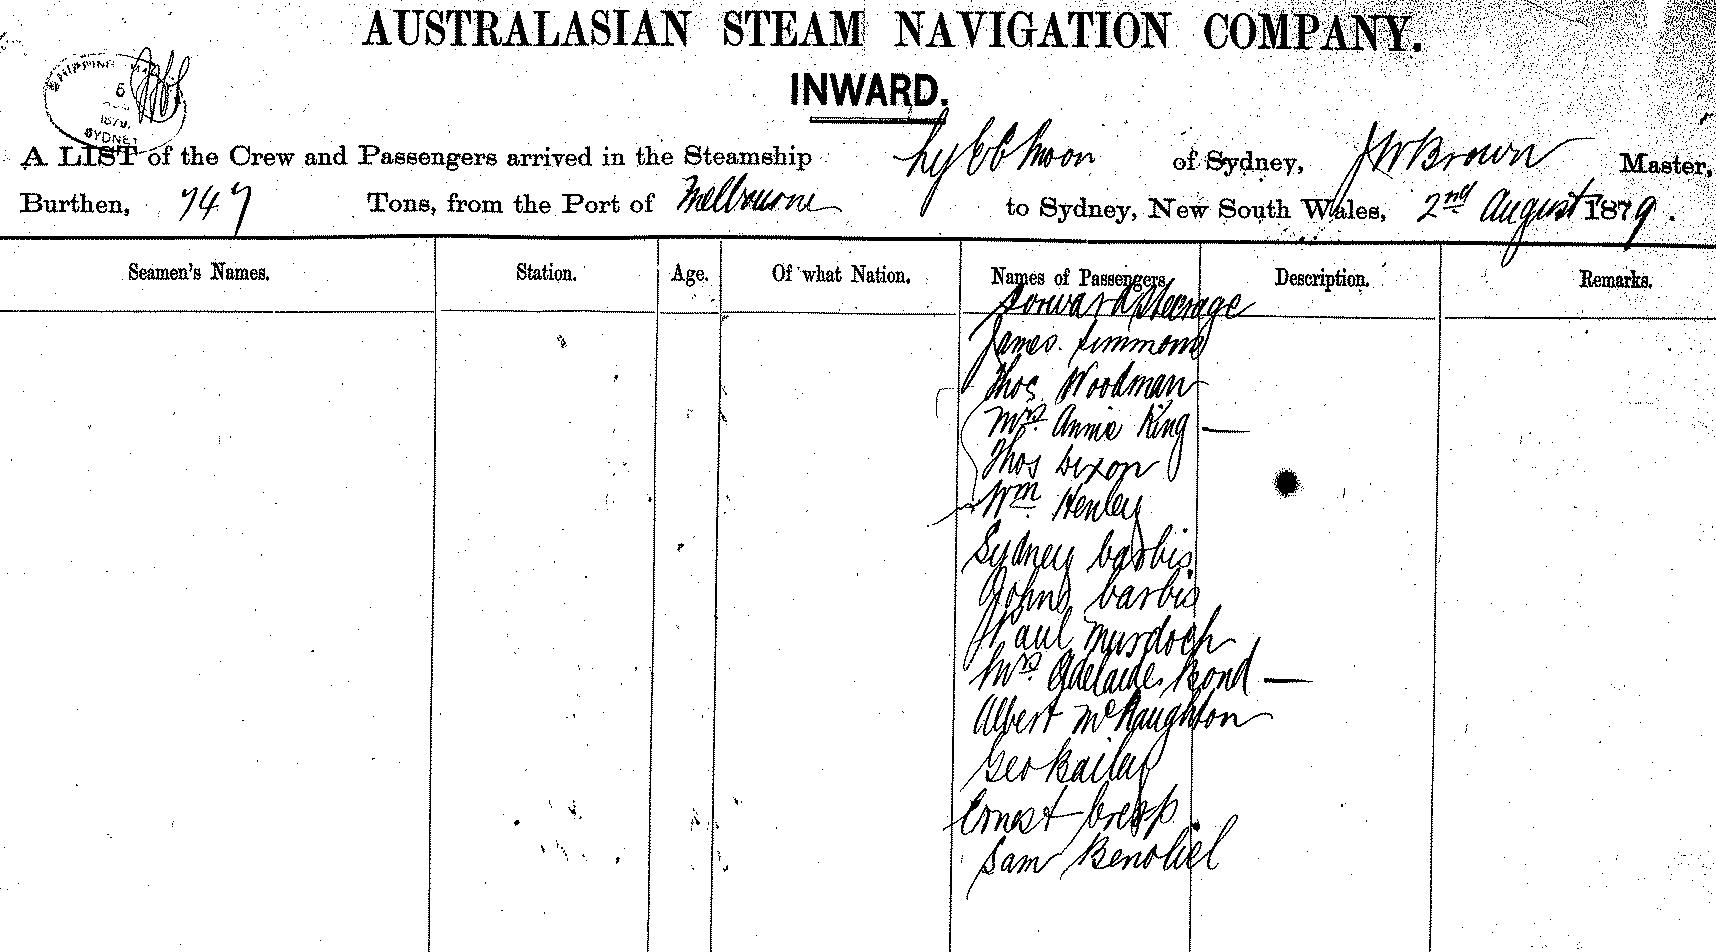 AUSTRALASIAN STEAM NAVIGATION COMPANY.
INWARD.
SHIPPING
1879.
SYDNEY
A LIST of the Crew and Passengers arrived in the Steamship Ly EE Moon of Sydney, J W Brown Master,
Burthen, 747 Tons, from the Port of Melbourne to Sydney, New South Wales, 2nd August 1879.
Seamen's Names. Station. Age. Of what Nation. Names of Passengers. Description. Remarks.
Forward Steerage
James Simmons
Thos Woodman
Mrs Annie King —
Thos Dixon
Wm Henley
Sydney Carbis
John Carbis
Paul Murdoch
Mrs Adelaide Bond —
Albert McNaughton
Geo Bailey
Ernest Cresp
Sam Benoliel